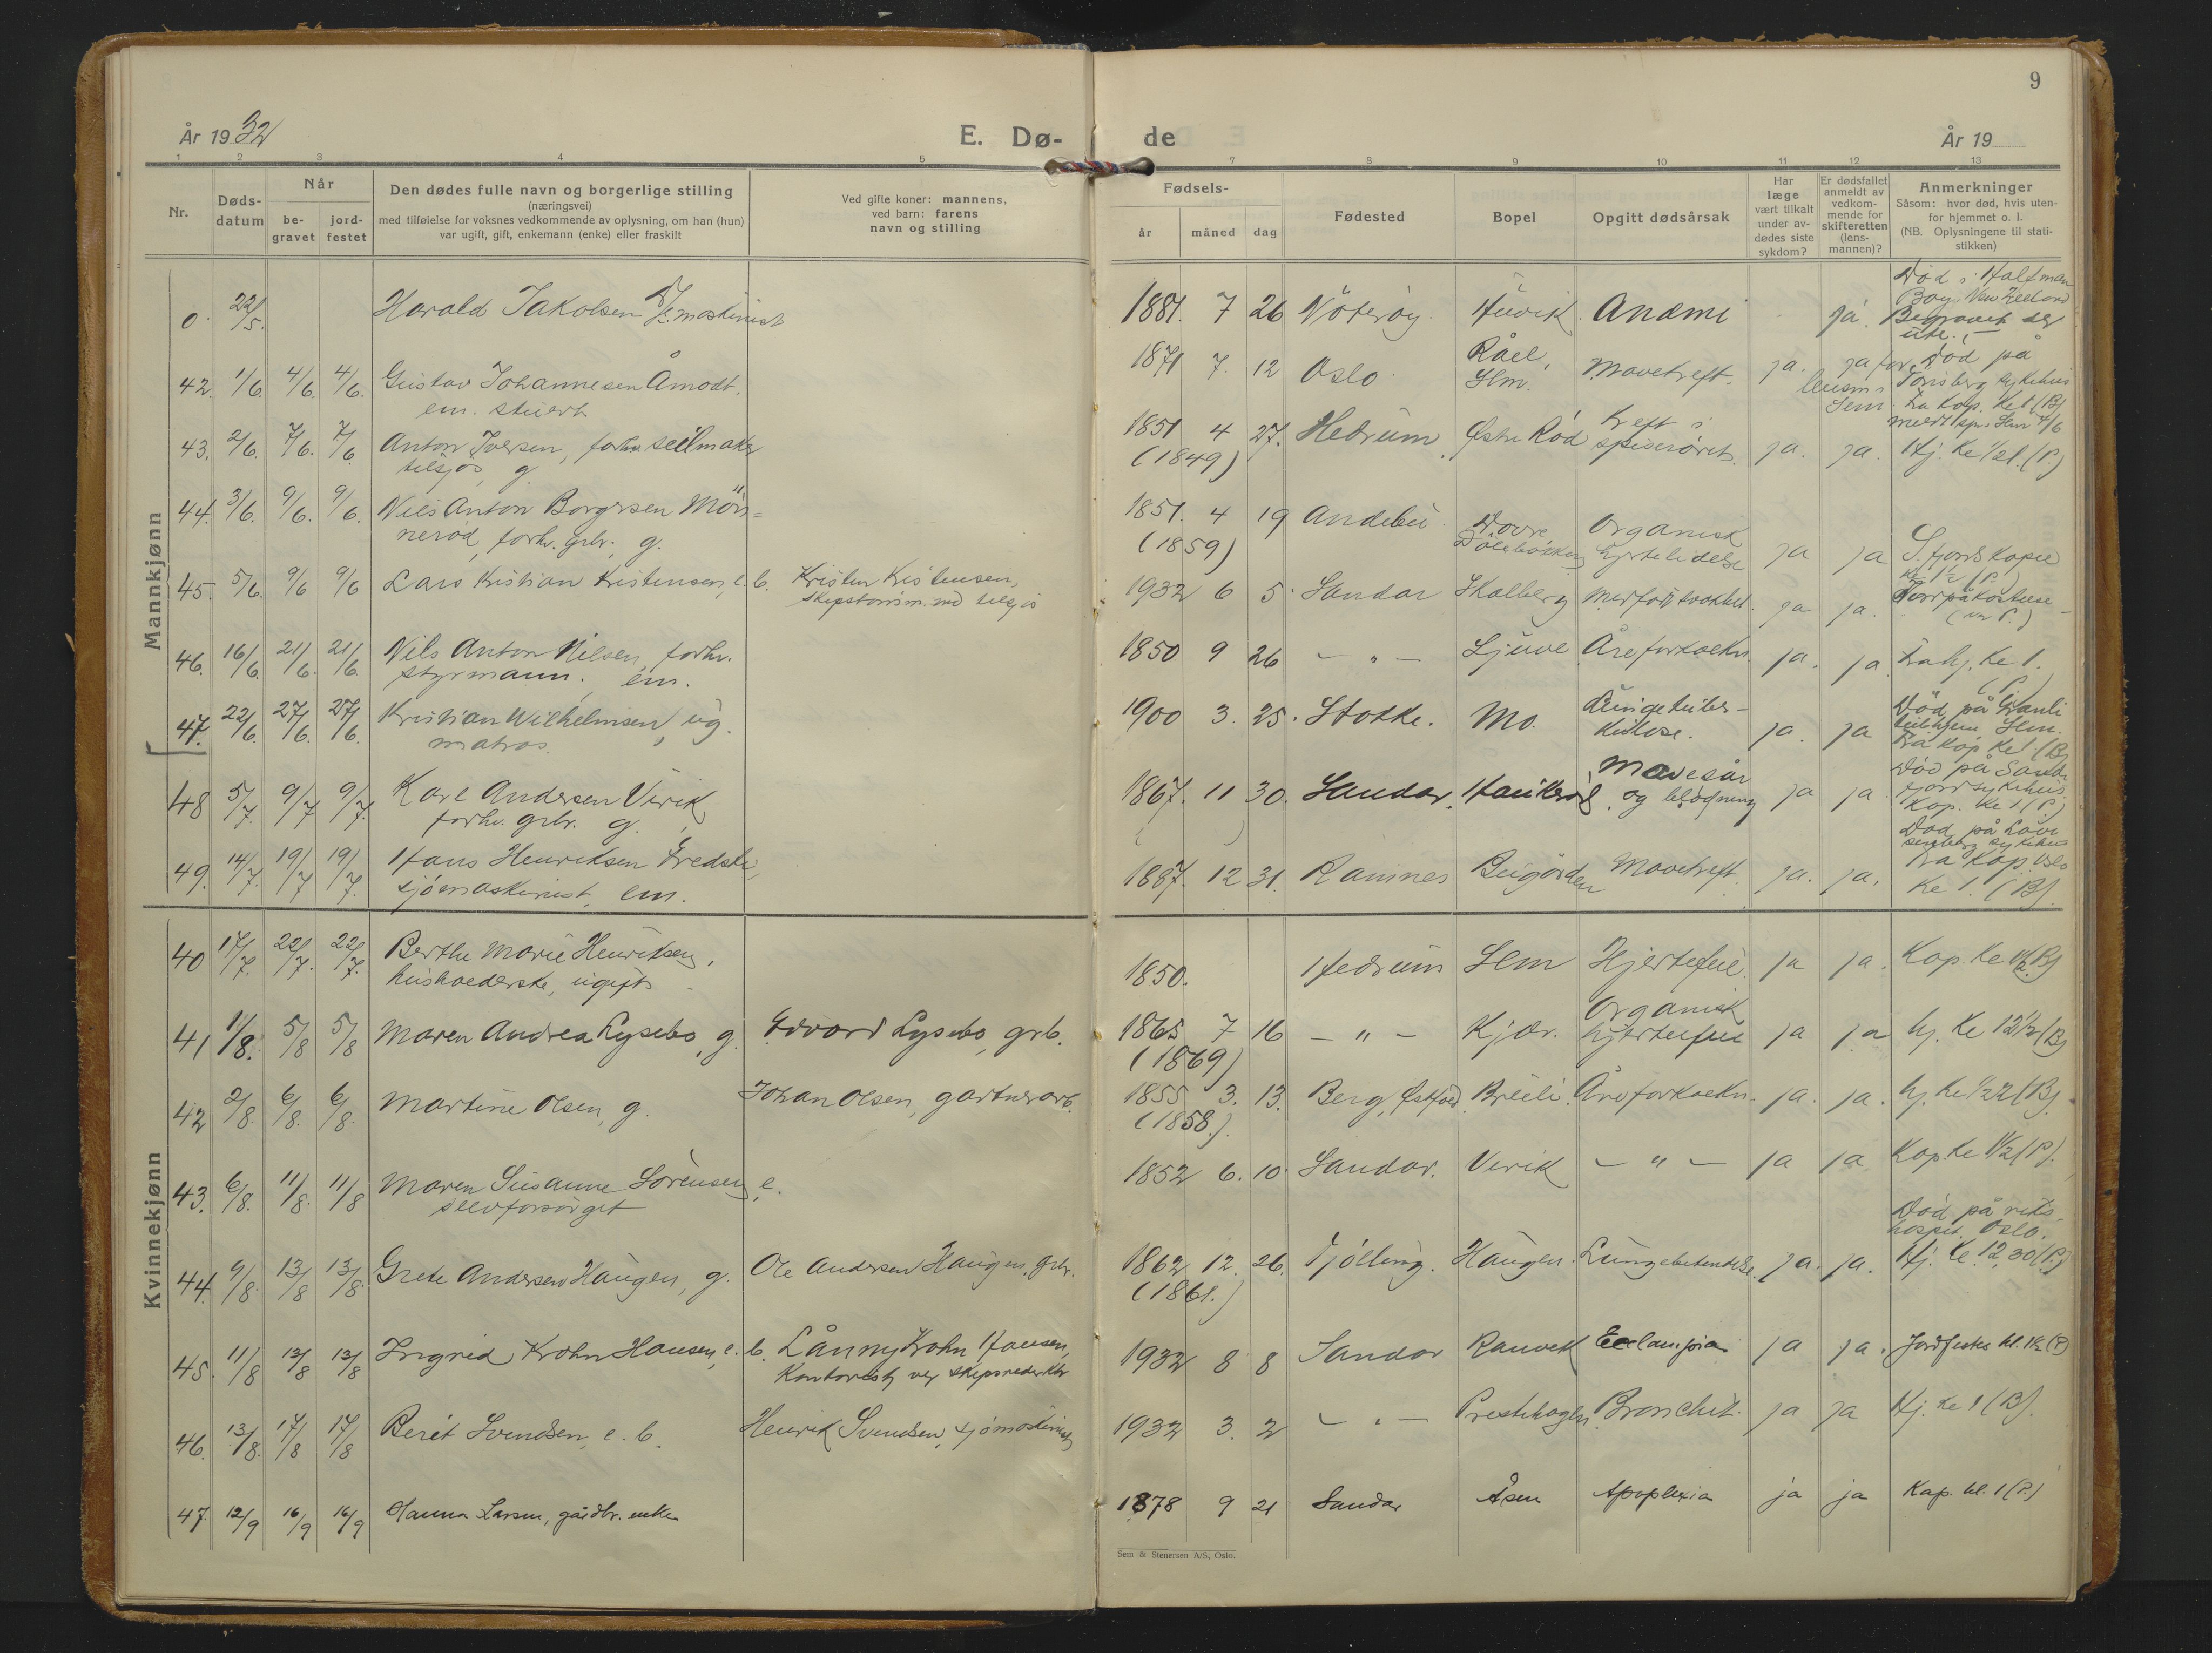 9
År 1932
E. Dø- de
År 19
1 2 3 4 5 7 8 9 10 11 12 13
Nr.
Døds-
datum
Når
be-
gravet
jord-
festet
Den dødes fulle navn og borgerlige stilling
(næringsvei)
med tilføielse for voksnes vedkommende av oplysning, om han (hun)
var ugift, gift, enkemann (enke) eller fraskilt
Ved gifte koner: mannens,
ved barn: farens
navn og stilling
Fødsels-
år måned dag
Fødested
Bopel
Opgitt dødsårsak
Har
læge
vært tilkalt
under av-
dødes siste
sykdom?
Er dødsfallet
anmeldt av
vedkom-
mende for
skifteretten
(lens-
mannen)?
Anmerkninger
Såsom: hvor død, hvis uten-
for hjemmet o. l.
(NB. Oplysningene til stati-
stikken)
Mannkjønn
0. 22/5. Harald Jakobsen maskinist 1881. 7 26 Nöteröy. Huvik Anæmi ja. Död i Half man
Bay New Zeeland
Begravet der
ute.
42. 1/6. 4/6. 4/6. Gustav Johannesen Åmodt, 1871 7. 12 Oslo Råel, Sem. Mavekreft. ja. ja for Död på
em. stuert lensm i Sem Tönsberg sykehus
fra kap. kl 1 (B)
43. 2/6. 7/6. 7/6. Anton Iversen, forhv seilmaker 1851 4 27. Hedrum Østre Röd Kreft i
tilsjös, g. (1849) spiserörets. ja. ja. Hj. kl 1/2 1. (P.)
44. 3/6. 9/6. 9/6. Nils Anton Borgersen Mön=
neröd, forhv. grbr., g. 1851. 4 19 Andebu Dovre Organisk
(1859) hjertelidelse ja ja S.fjords kapel
kl 1 1/2 (P.)
45. 5/6. 9/6 9/6 Lars Kristian Kristensen, e. b. Kristen Kristensen,
tilsjös 1932 6 5 Sandar Skolberg Medfödt ja ja. Jordpåkastelse
46. 16/6. 21/6. 21/6. Nils Anton Nilsen, forhv.
styrmann. em. 1850 9 26 - " - Ljuve Åreforkalkn. ja. ja fra hj. kl 1.
(P.)
47. 22/6. 27/6. 27/6. Kristian Wilhelmsen, ug.
matros. 1900 3. 25. Stokke. Mo. Lungetuber-
kulose. ja. ja Död på Granli
tub.hjem, Sem.
Fra kap kl 1. (B)
48 5/7. 9/7 9/7. Karl Andersen Virik
forhv. grbr. g. 1867. 11 30. Sandar. Haukeröd Mavesår
og blödning ja ja Död på Sande-
fjord sykehus.
Kap. kl 1 (P.)
49. 14/7. 19/7 19/7. Hans Henriksen Fredsti,
sjömaskinist, em. 1887. 12 31. Ramnes Bugården Mavekreft. ja. ja. Död på Lovi
senberg sykehus
fra Kap Oslo
kl 1. (B).
Kvinnekjønn
40 17/7. 22/7. 22/7. Berthe Marie Henriksen,
husholderske, ugift 1850. Hedrum Sem Hjertefeil. ja ja. Kap kl (B)
41 1/8. 5/8 5/8 Maren Andrea Lysebo, g. Edvard Lysebo, grb. 1865 7 16 - " - Kjær. Organisk
(1869) hjertefeil ja ja hj. kl 12 1/2 (B)
42 2/8. 6/8. 6/8. Martine Olsen, g. Johan Olsen, gartnerarb. 1855 3. 13. Berg, Østfold. Breili. Åreforkalkn. ja. ja. hj. kl 1/2 2 (B).
(1858.)
43. 6/8. 11/8. 11/8 Maren Susanne Sörensen, e.
selvforsörget 1852 6. 10. Sandar. Virik - " - ja ja Kap kl 1 1/2 (P.)
44. 9/8. 13/8 13/8. Grete Andersen Haugen, g. Ole Andersen Haugen, grbr. 1862. 12. 26. Tjölling. Haugen. Lungebetendelse. ja. ja. Död på riks-
hospit. Oslo.
(1861.) Hj. kl. 12,30 (P.)
45. 11/8 13/8 13/8 Ingrid Krohn Hansen, e. b. Krohn Hansen,
Kontorist ved skipsrederktr 1932 8 8 Sandar Ranvik Eclampsia ja ja. Jordfestes kl. 1 1/2 (P)
46. 13/8. 17/8 17/8 Berit Svendsen, e. b. Henrik Svendsen, sjömaskinist 1932 3. 2 - " - Prestehagen Bronchit. ja ja Hj. kl 1 (B).
47. 12/9 16/9 16/9 Hanna Larsen, gårdbr. enke 1878 9 21 Sandar Åsen Apoplexia ja ja Kap. kl. 1 (P.)
Sem & Stenersen A/S, Oslo.